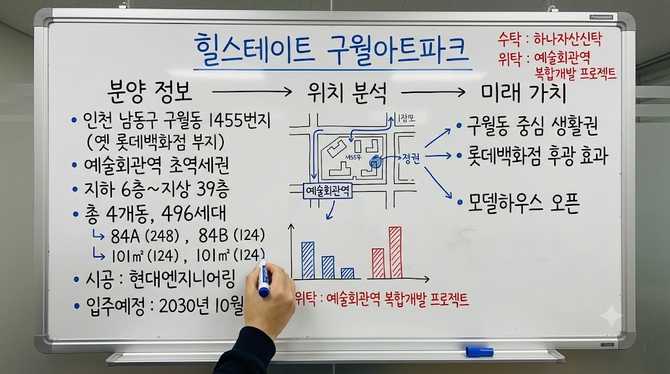 힐스테이트 구월아트파크
수탁 : 하나자산신탁
위탁 : 예술회관역
복합개발 프로젝트
분양 정보
위치 분석
미래 가치
• 인천 남동구 구월동 1455번지
(옛 롯데백화점 부지)
• 예술회관역 초역세권
• 지하 6층~지상 39층
• 총 4개동, 496세대
↳ 84A (248) , 84B (124)
↳ 101㎡ (124) , 101㎡ (124)
• 시공 : 현대엔지니어링
• 입주예정 : 2030년 10월
정권
예술회관역
위탁 : 예술회관역 복합개발 프로젝트
• 구월동 중심 생활권
• 롯데백화점 후광 효과
• 모델하우스 오픈